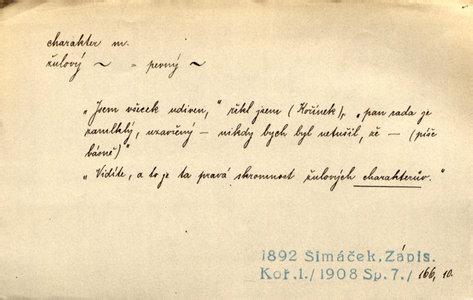 charakter m.
žulový ~ = pevný ~
„Jsem všecek udiven,“ řekl jsem (Kořínek), „pan rada je
zamlklý, uzavřený – nikdy bych byl netušil, že – (píše
básně)“
„Vidíte, a to je ta pravá skromnost žulových charakterův.“
1892 Šimáček, Zápis.
Koř.1./1908 Sp.7./ 166, 10.